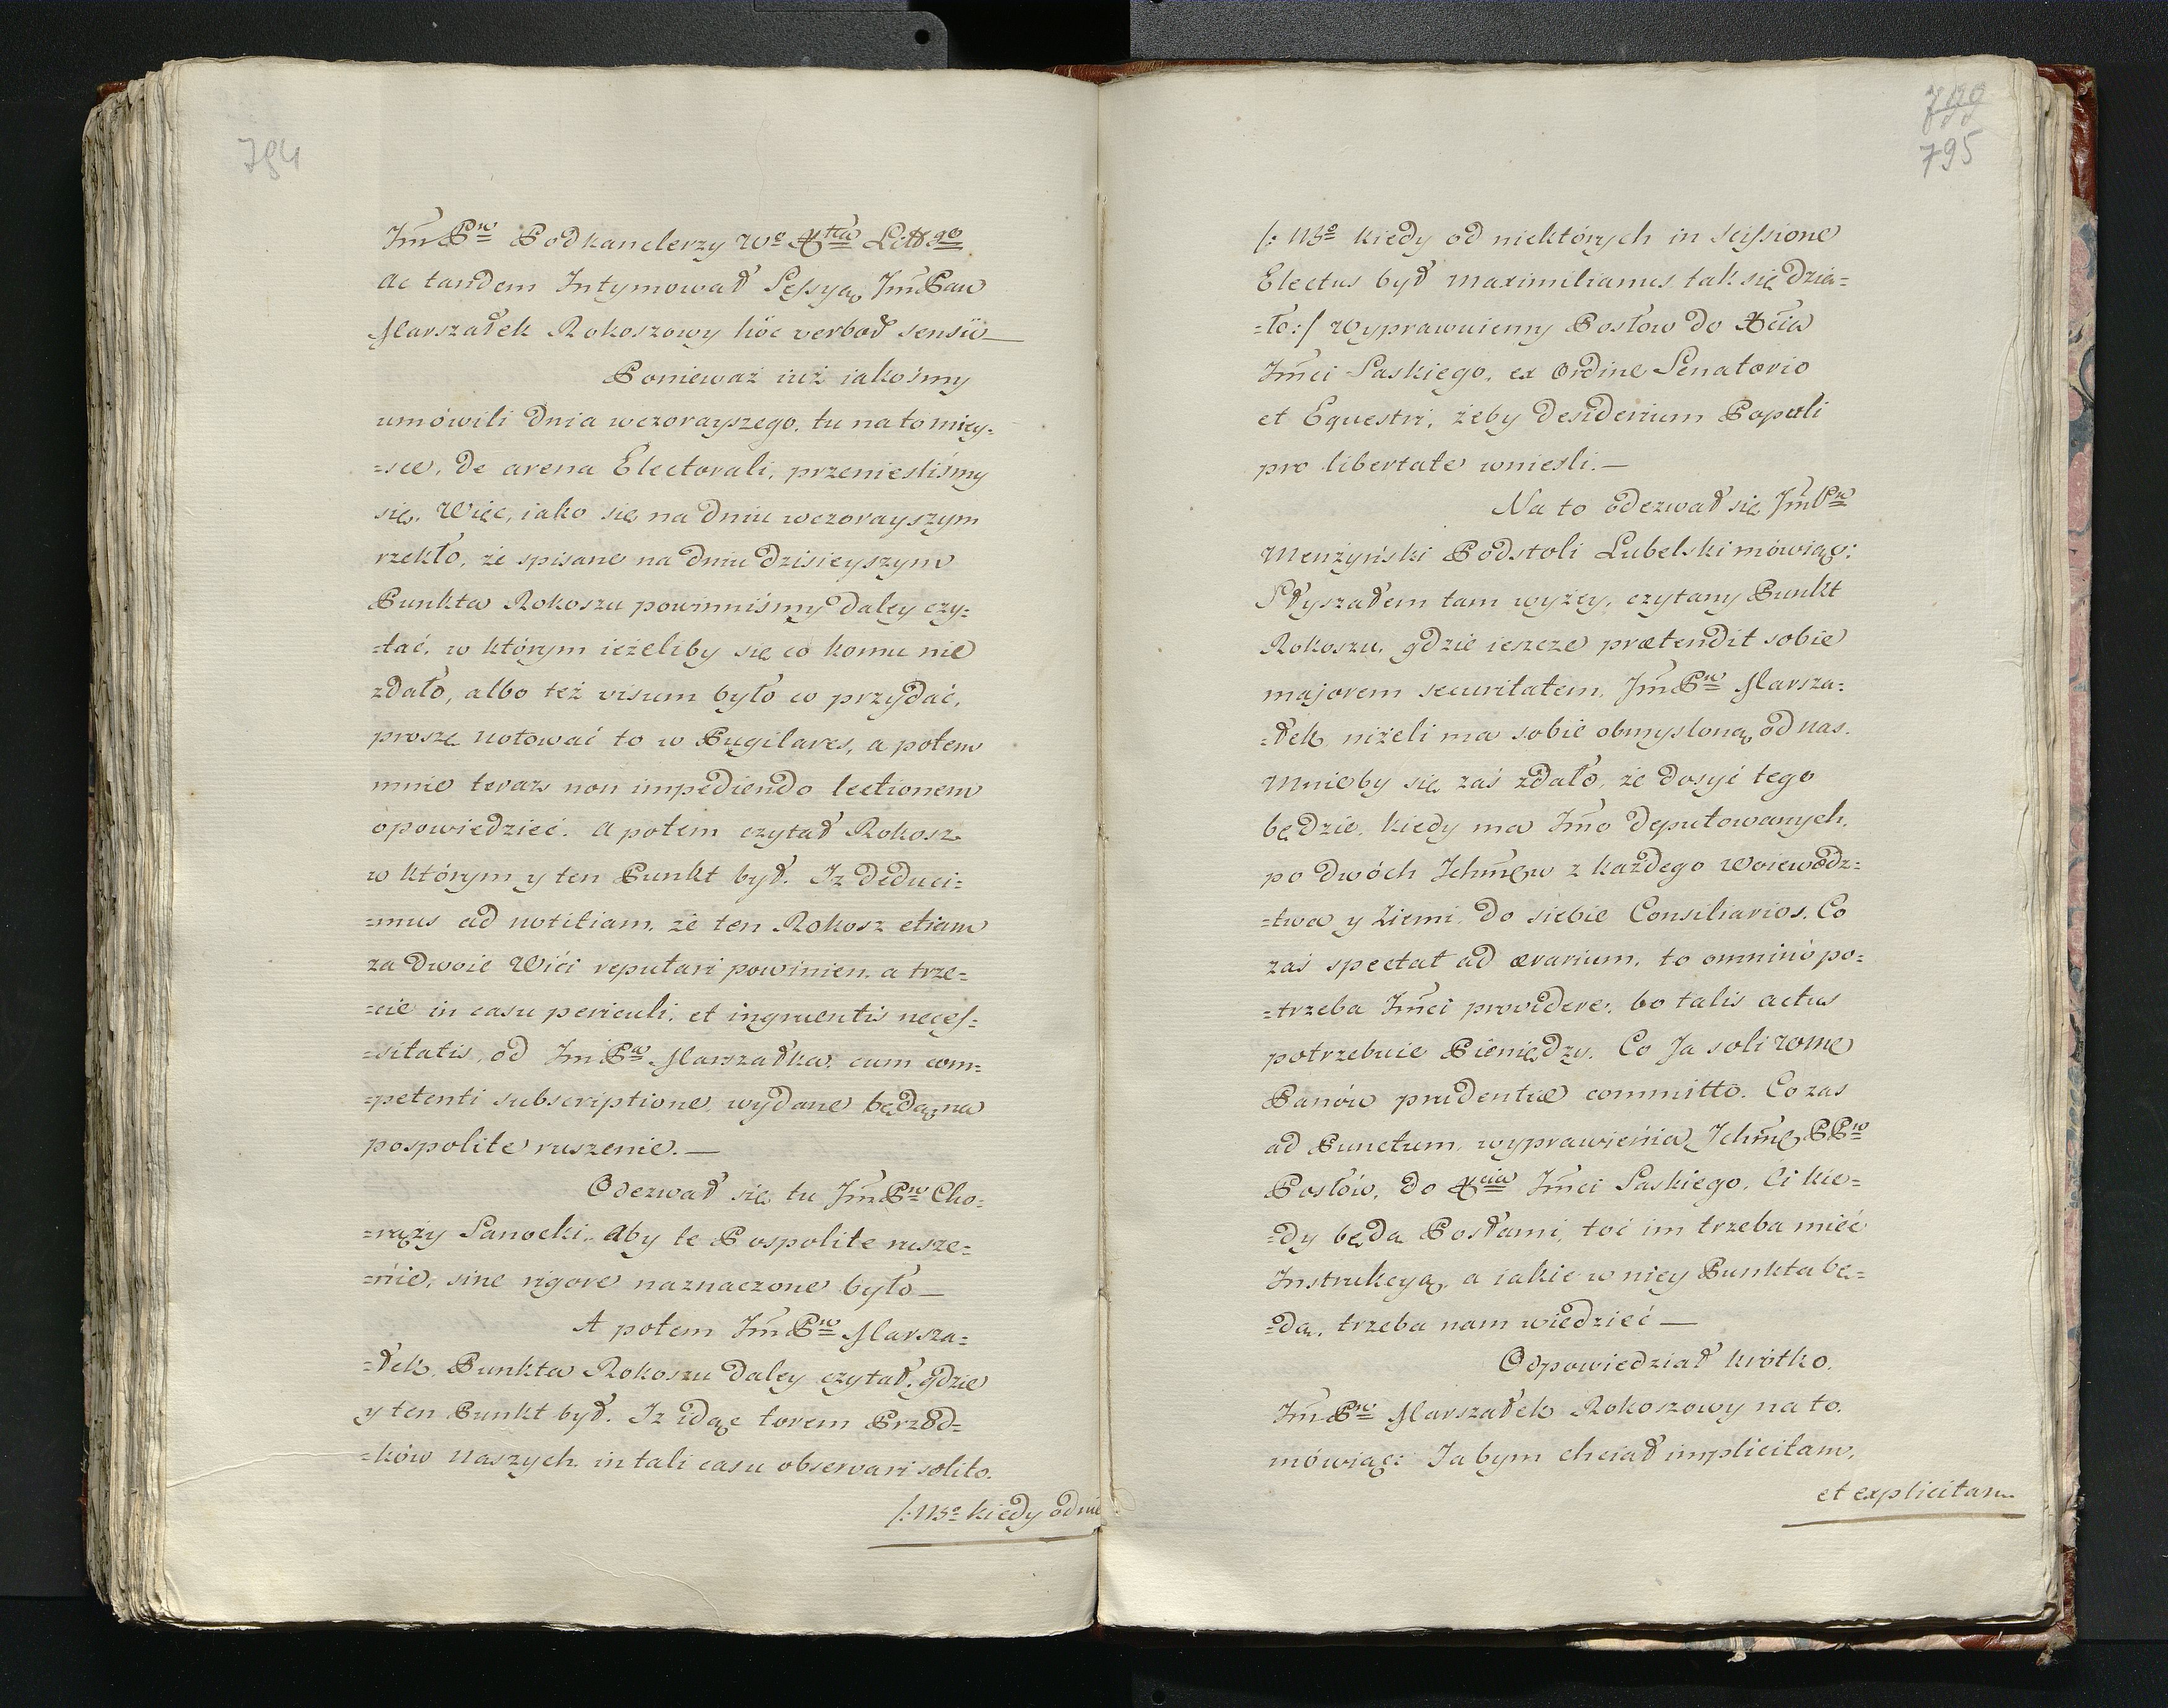 784
Jm̃ Pn Podkanclerzy Wo Xtwa Littgo
ac tandem Intymował Sessyą Jm̃ Pan
Marszałek Rokoszowy hôc verbor̃ sensû —
Ponieważ iuż iakośmy
umówili dnia wczorayszego, tu na to miey=
=sce, de arena Electorali, przenieśliśmy
się. Więc, iako się na dniu wczorayszym
rzekło, że spisane na dniu dzisieyszym
Punkta Rokoszu powinniśmy daley czy=
=tać, w którym ieżeliby się co komu nie
zdało, albo też visum było co przydać,
proszę notować to w Pugilares, a potem
mnie teraz non impediendo lectionem
opowiedzieć. A potem czytał Rokosz
w którym y ten Punkt był. Iż deduci=
=mus ad notitiam, że ten Rokosz etiam
za dwoie Wici reputari powinien, a trze=
=cie in casu periculi, et ingruentis neces=
=sitatis, od Jm̃ Pa Marszałka, cum com=
=petenti subscriptione, wydane będą na
pospolite ruszenie. —
Odezwał się tu Jm̃ Pn Cho=
=rąży Sanocki. Aby te Pospolite rusze=
=nie, sine rigore naznaczone było —
A potem Jm̃ Pn Marsza=
=łek, Punkta Rokoszu daley czytał, gdzie
y ten Punkt był. Iż idąc torem Przod=
=ków naszych in tali casu observari solito.
/: NBo kiedy od nie
799
795
/: NBo kiedy od niektórych in scissione
Electus był Maximilianus tak się dzia=
=ło :/ wyprawuiemy Posłow do Xcia
Jm̃ci Saskiego, ex Ordine Senatorio
et Equestri, żeby desiderium Populi
pro libertate wnieśli. —
Na to odezwał się Jm̃ Pn
Menżyński Podstoli Lubelski mówiąc:
Słyszałem tam wyżey, czytany Punkt
Rokoszu, gdzie ieszcze prætendit sobie
majorem securitatem, Jm̃ Pn Marsza=
=łek, niżeli ma sobie obmysloną od nas.
Mnieby się zaś zdało, że dosyć tego
będzie, kiedy ma Jm̃o deputowanych,
po dwóch Ichm̃ow z każdego Woiewodz=
=twa y Ziemi, do siebie Consiliarios. Co
zaś spectat ad ærarium, to omninò po=
=trzeba Jm̃ci providere, bo talis actus
potrzebuie Pieniędzy. Co Ja soli Wme
Panów prudentiæ committo. Co zas
ad Punctum, wyprawienia Ichm̃ę PPw
Posłów, do Xcia Jm̃ci Saskiego, Ci kie=
=dy będą Posłami, toć im trzeba mieć
Instrukcyą, a iakie w niey Punkta bę=
=dą, trzeba nam wiedzieć —
Odpowiedział krótko,
Jm̃ Pn Marszałek Rokoszowy na to,
mówiąc: Ja bym chciał implicitam,
et explicitam